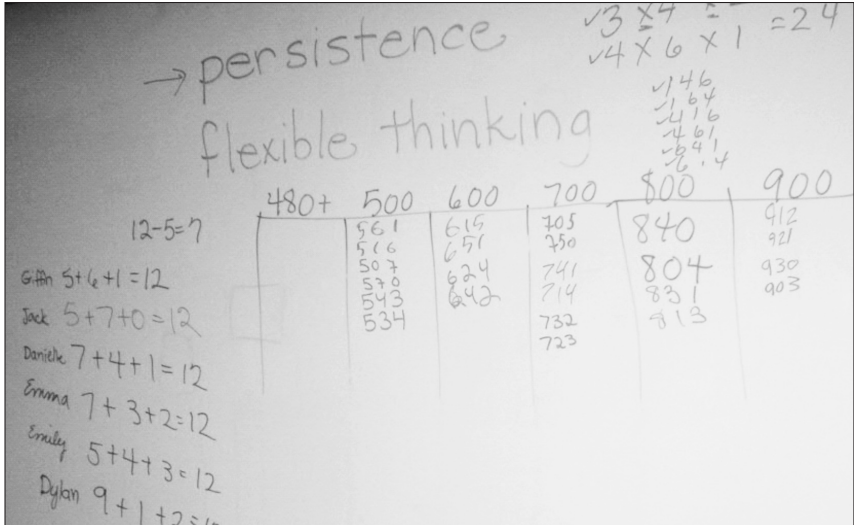 → persistence
flexible thinking
✓3 × 4 =
✓4 × 6 × 1 = 24
✓146
✓164
✓416
✓461
✓641
480+ 500 600 700 800 900
561 615 705 840 912
516 651 750 804 921
507 624 741 831 930
570 642 714 813 903
543 732
534 723
12-5=7
Griffin 5+6+1=12
Jack 5+7+0=12
Danielle 7+4+1=12
Emma 7+3+2=12
Emily 5+4+3=12
Dylan 9+1+2=12